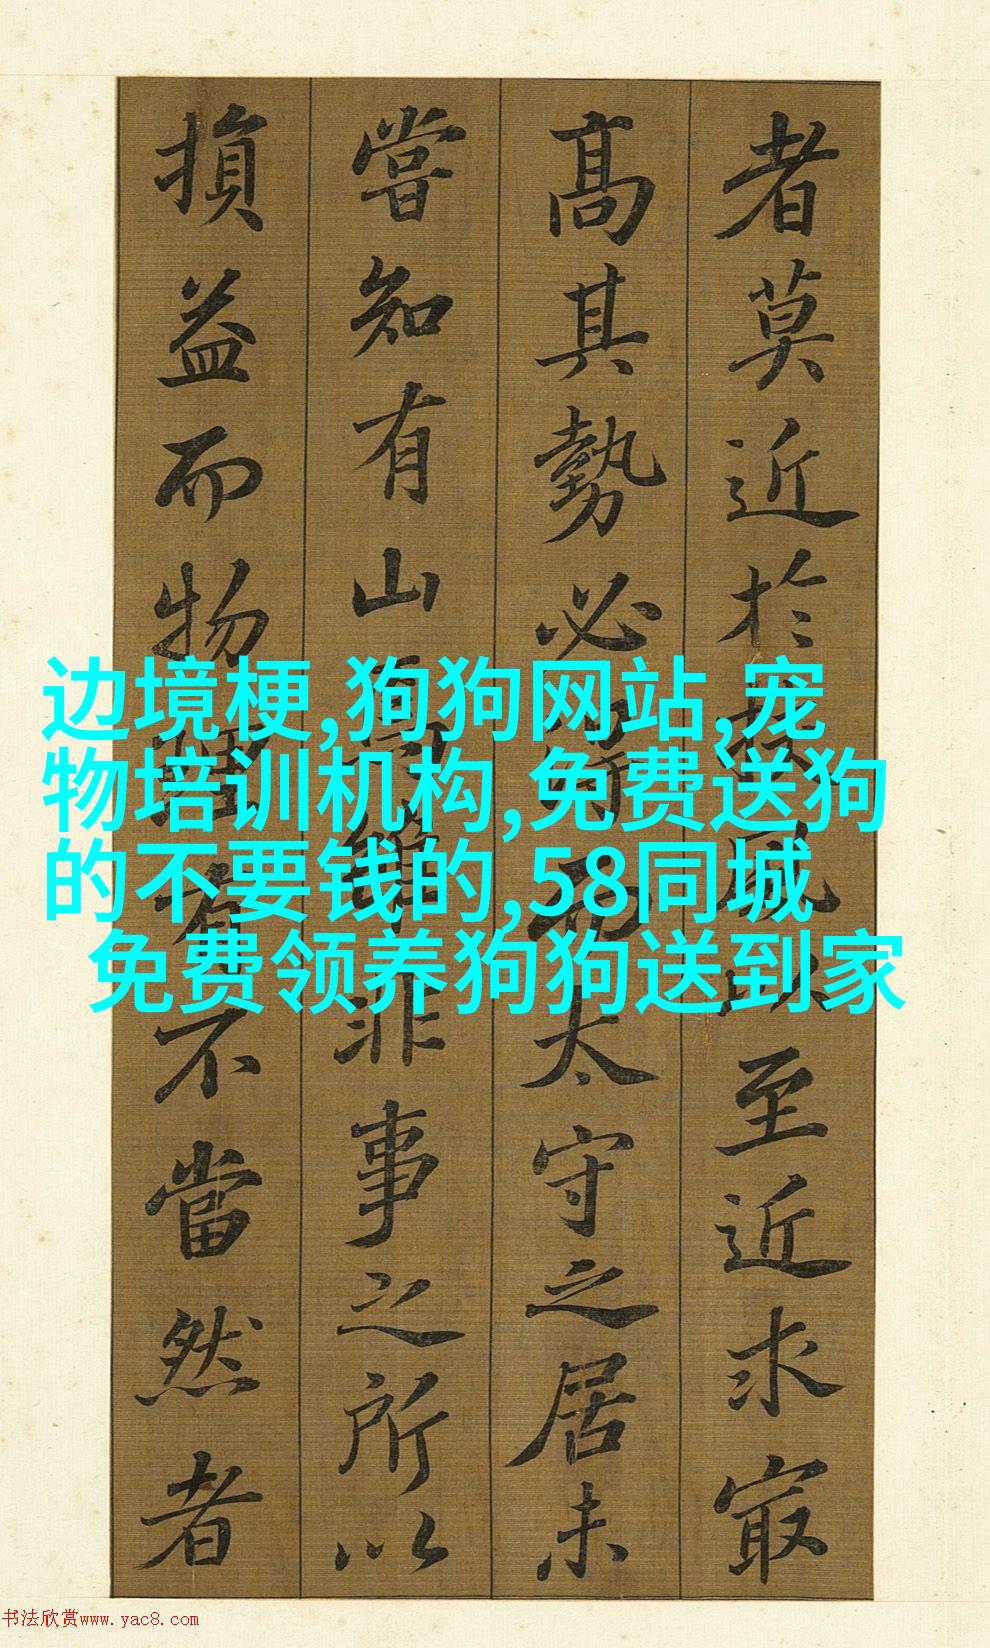 者莫近於扶風以至近求最
高其勢必得而太守之居未
嘗知有山焉雖非事之所以
損益而物理有不當然者
边境梗,狗狗网站,宠
物培训机构,免费送狗
的不要钱的,58同城
免费领养狗狗送到家
书法欣赏www.yac8.com